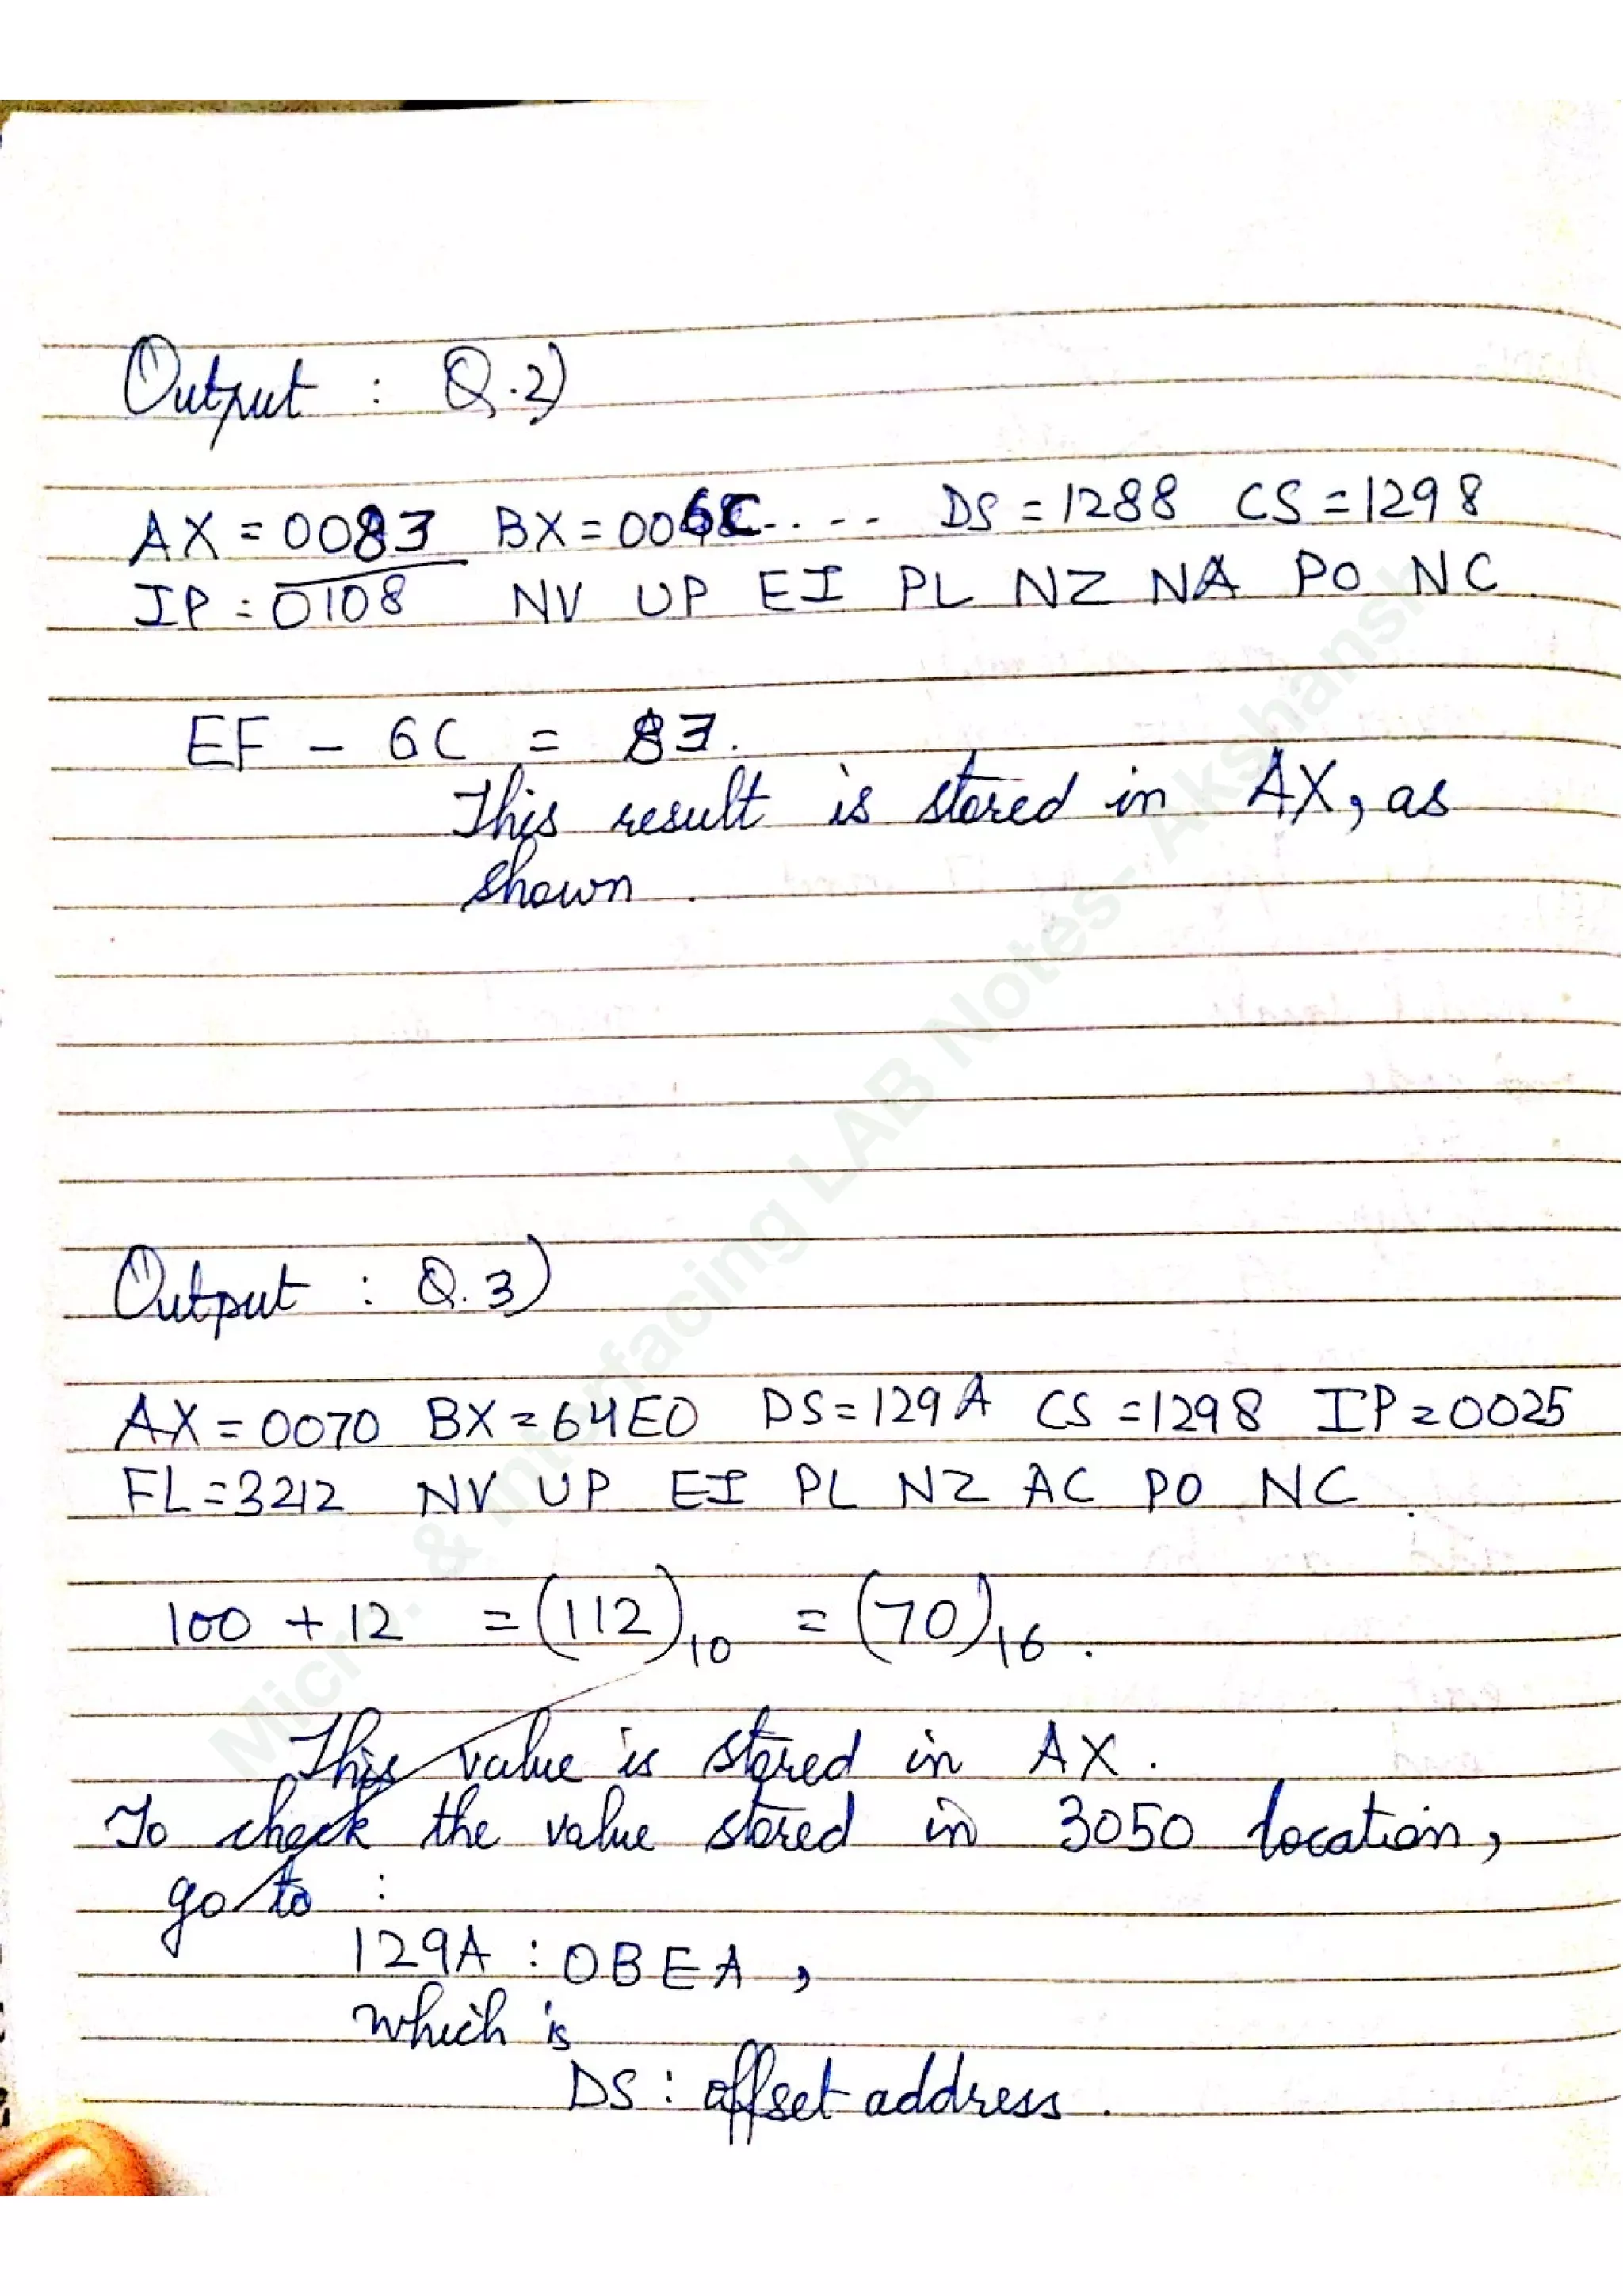 Output : Q.2)
AX = 0083 BX = 006C .... DS = 1288 CS = 1298
IP = 0108 NV UP EI PL NZ NA PO NC
EF - 6C = 83.
This result is stored in AX, as
shown.
Output : Q.3)
AX = 0070 BX = 64E0 DS = 129A CS = 1298 IP = 0025
FL = 3212 NV UP EI PL NZ AC PO NC.
100 + 12 = (112)10 = (70)16.
This value is stored in AX.
To check the value stored in 3050 location,
go to :
129A : 0BEA,
which is
DS : offset address.
Micr. & Interfacing LAB Notes- Akshansh